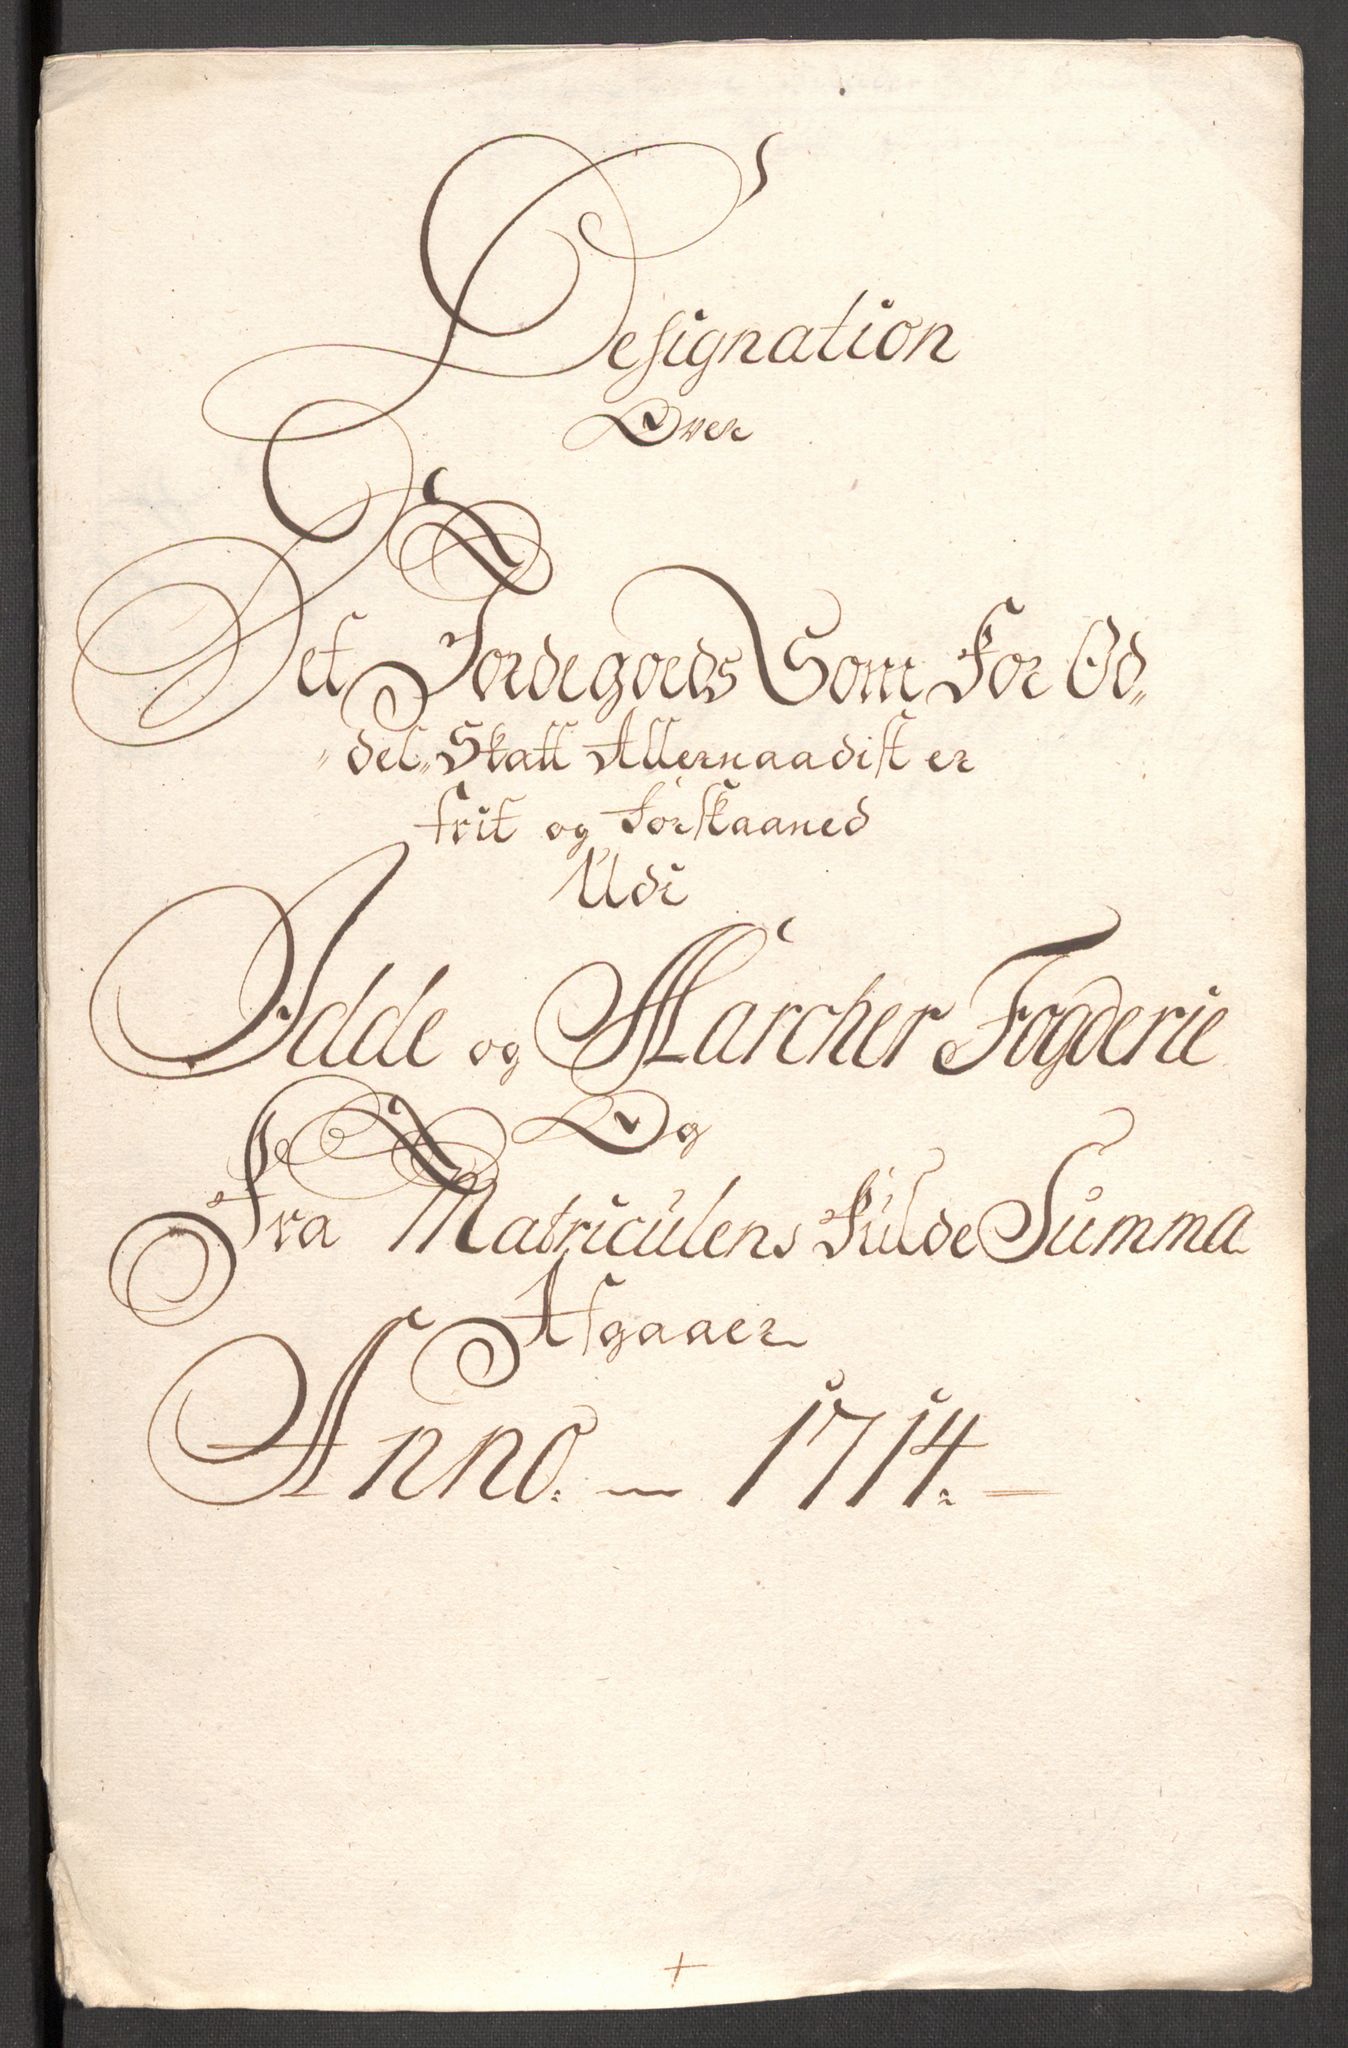 Designation
Over
Det Jordegoeds Som for Od„
„del„ Skatt Allernaadist er
frit og forskaaned
Udi
Idde og Marcher Fogderie
Og
Fra Matriculens fulde Summa
Afgaaer
Anno. — 1714. —